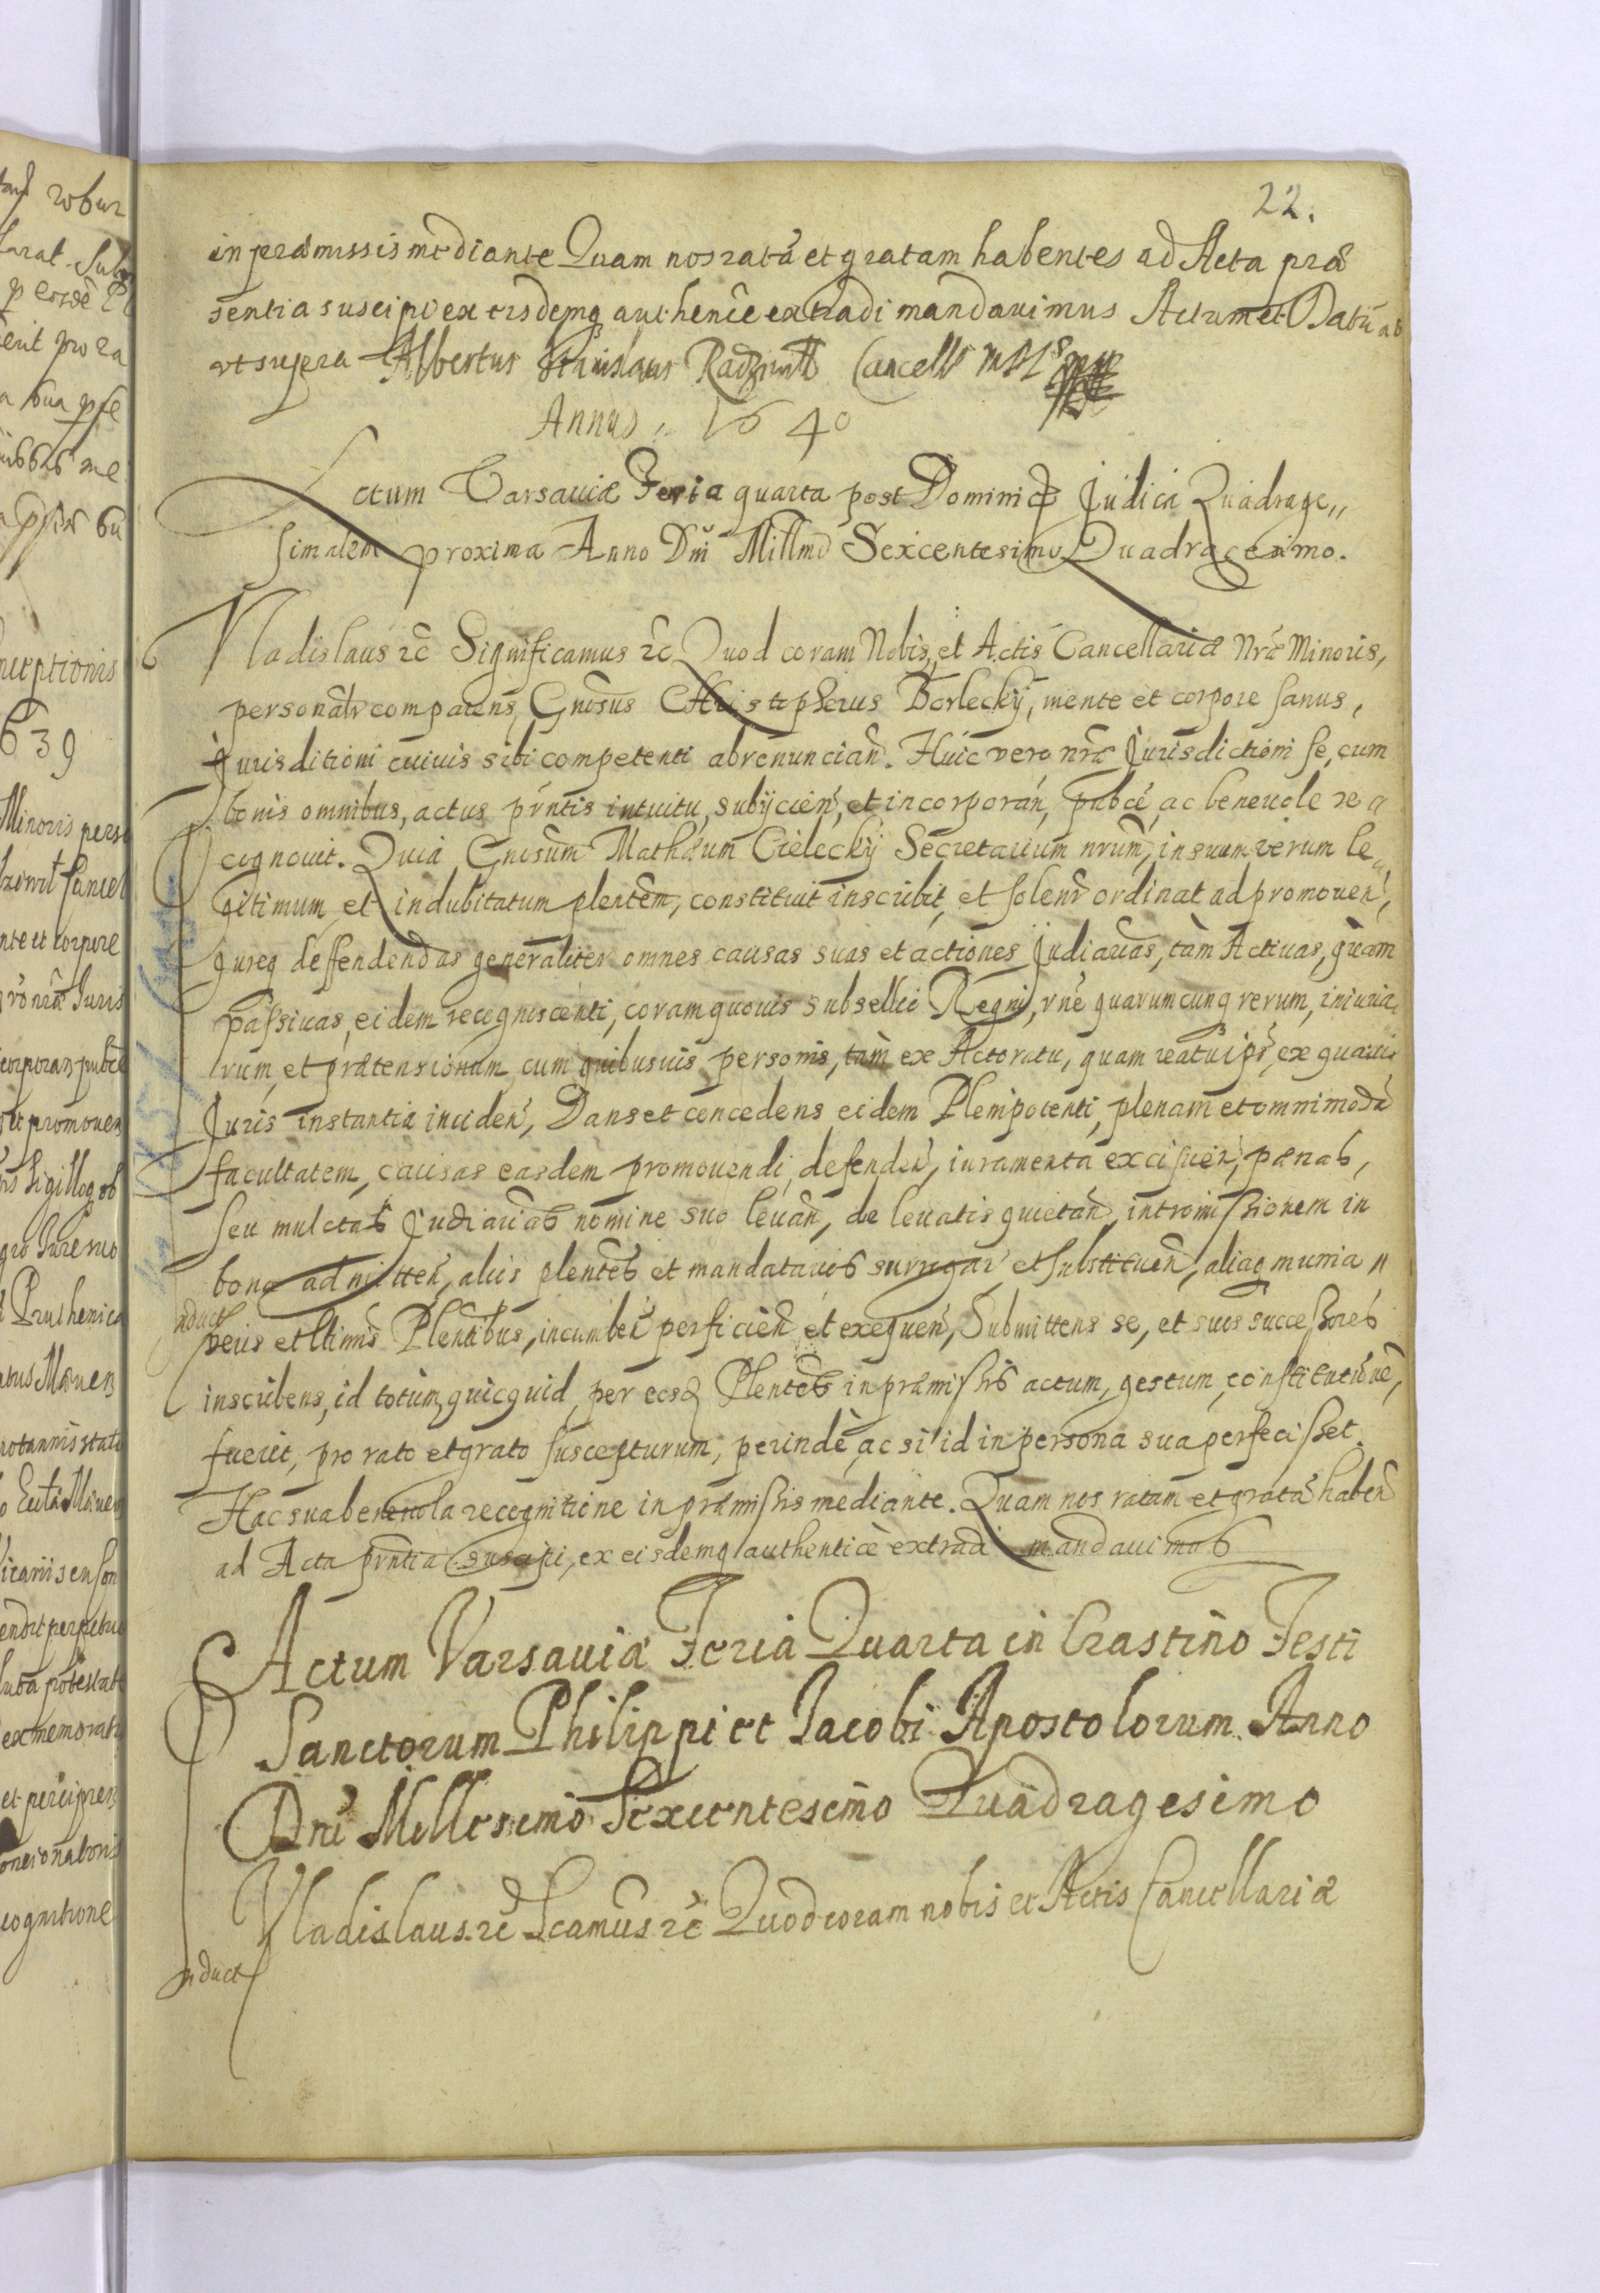 22.
in præmissis mediante Quam nos ratā et gratam habentes ad Acta præ
sentia suscipi ex eisdemq authence extradi mandauimus Actum et Datū
ut supra Albertus Stanislaus Radziwill Cancell
Annus 1640
Actum Varsauiæ Feria quarta post Dominicā Judica Quadrage„
simalem proxima Anno Dni Millmo Sexcentesimo Quadragesimo.
Vladislaus &c Significamus &c Quod coram Nobis, et Actis Cancellariæ Nræ Minoris,
personalr comparens Gnosus Christopherus Borlecky, mente et corpore sanus,
Jurisditioni cuiuis sibi competenti abrenuncian. Huic vero nræ Jurisdictioni se, cum
bonis omnibus, actus pnntis intuitu, subijcien, et incorporan, pubce, ac beneuole re
cognouit. Quia Gnosum Mathæum Cielecky Secretarium nrum, in suum verum le„
gitimum et indubitatum plentem, constituit inscribit, et solenr ordinat ad promouen,
Jureq deffendendas generaliter omnes causas suas et actiones Judiarias, tàm Actiuas, quam
passiuas, eidem recegniscenti, coram quouis subsellio Regni, rne quarumcunq rerum, iniuria
rum, et prætensionum cum quibusuis personis, tàm ex Actoratu, quam reatu ipi, ex quauis
Juris instantia inciden, Dans et concedens eidem Plenipotenti, plenam et omnimodā
facultatem, causas easdem promouendi, defenden, iuramenta excipien, pænas,
seu mulctas Judiarias nomine suo leuan, de leuatis quietan, intromissionem in
bona admitten, aliis plentes et mandatarios surrogar et substituen, aliaq munia „
nduct
veris et ltimis Plentibus, incumben perficien et exequen, Submittens se, et suos successores
inscribens, id totum, quicquid, per eosd Plentes in præmissis actum, gestum, constitutūue,
fuerit, pro rato et grato suscepturum, perindè, ac si id in persona sua perfecisset.
Hac sua beneuola recognitione in præmissis mediante. Quam nos ratam et gratā haben
ad Acta pnntia suscipi, ex eisdemq authenticè extradi mandauimus
Actum Varsauiæ Feria Quarta in Crastino Festi
Sanctorum Philippi et Jacobi Apostolorum Anno
Dni Millesimo Sexcentesimo Quadragesimo
Vladislaus &c Scamus &c Quod coram nobis et Actis Cancellariæ
nduct